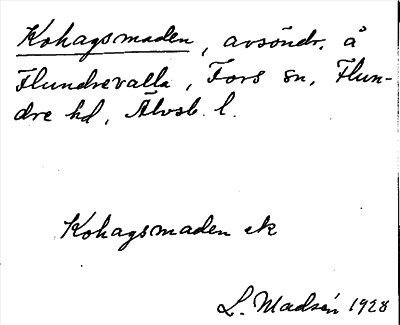 Kohagsmaden, avsöndr. å
Flundrevalla, Fors sn, Flun-
dre hd, Älvsb. l.
Kohagsmaden ek
L. Madsén 1928